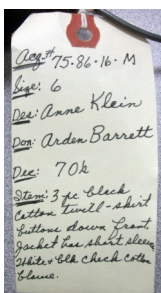 Acq# 75.86.16.M
Size: 6
Des: Anne Klein
Don: Arden Barrett
Dec: 70s
Item: 3 pc black
cotton twill-skirt
buttons down front,
jacket has short sleeves
White & blk check cotton
blouse.